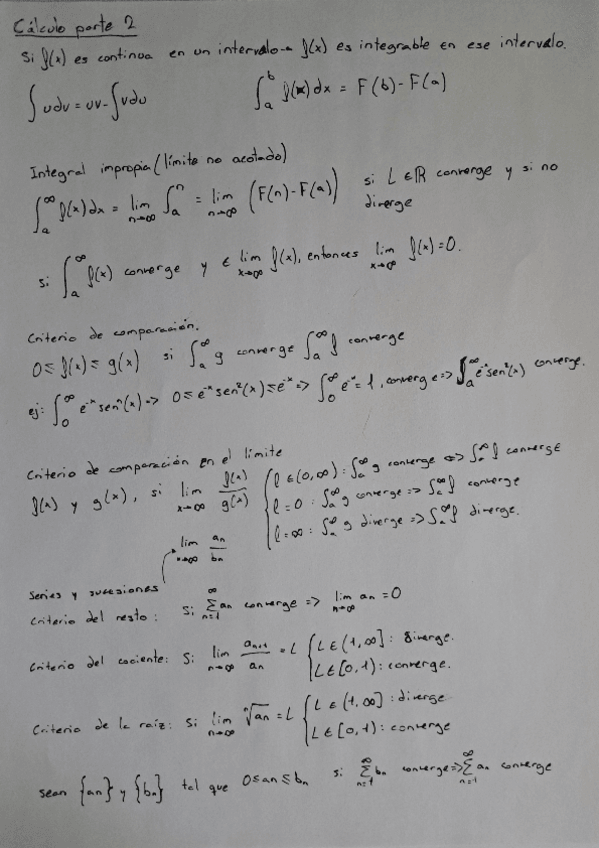 Cálculo parte 2
Si f(x) es continua en un intervalo → f(x) es integrable en ese intervalo.
∫udv = uv - ∫vdu    ∫_a^b f(x)dx = F(b) - F(a)
Integral impropia (límite no acotado)
∫_a^∞ f(x)dx = lim_{n→∞} ∫_a^n = lim_{n→∞} (F(n) - F(a)) si L ∈ ℝ converge y si no diverge
si ∫_a^∞ f(x) converge y ∈ lim_{x→∞} f(x), entonces lim_{x→∞} f(x) = 0.
Criterio de comparación.
0 ≤ f(x) ≤ g(x) si ∫_a^∞ g converge ∫_a^∞ f converge
ej: ∫_0^∞ e^-x sen²(x) => 0 ≤ e^-x sen²(x) ≤ e^-x => ∫_0^∞ e^-x = 1, converge => ∫_a^∞ e^-x sen²(x) converge.
Criterio de comparación en el límite
f(x) y g(x), si lim_{x→∞} f(x)/g(x) { l ∈ (0, ∞) : ∫_a^∞ g converge <=> ∫_a^∞ f converge
l = 0 : ∫_a^∞ g converge => ∫_a^∞ f converge
l = ∞ : ∫_a^∞ g diverge => ∫_a^∞ f diverge.
lim_{x→∞} an/bn
Series y sucesiones
Criterio del resto : Si ∑_{n=1}^∞ an converge => lim_{n→∞} an = 0
Criterio del cociente: Si lim_{n→∞} a_{n+1}/an = L { L ∈ (1, ∞] : diverge.
L ∈ [0, 1) : converge.
Criterio de la raíz: Si lim_{n→∞} ⁿ√an = L { L ∈ (1, ∞] : diverge
L ∈ [0, 1) : converge
sean {an} y {bn} tal que 0 ≤ an ≤ bn si ∑_{n=1}^∞ bn converge => ∑_{n=1}^∞ an converge